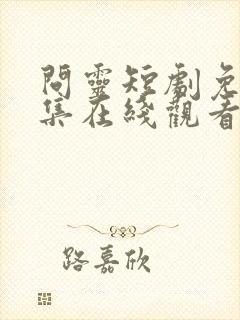 問靈短劇免
集在綫觀看
路嘉欣